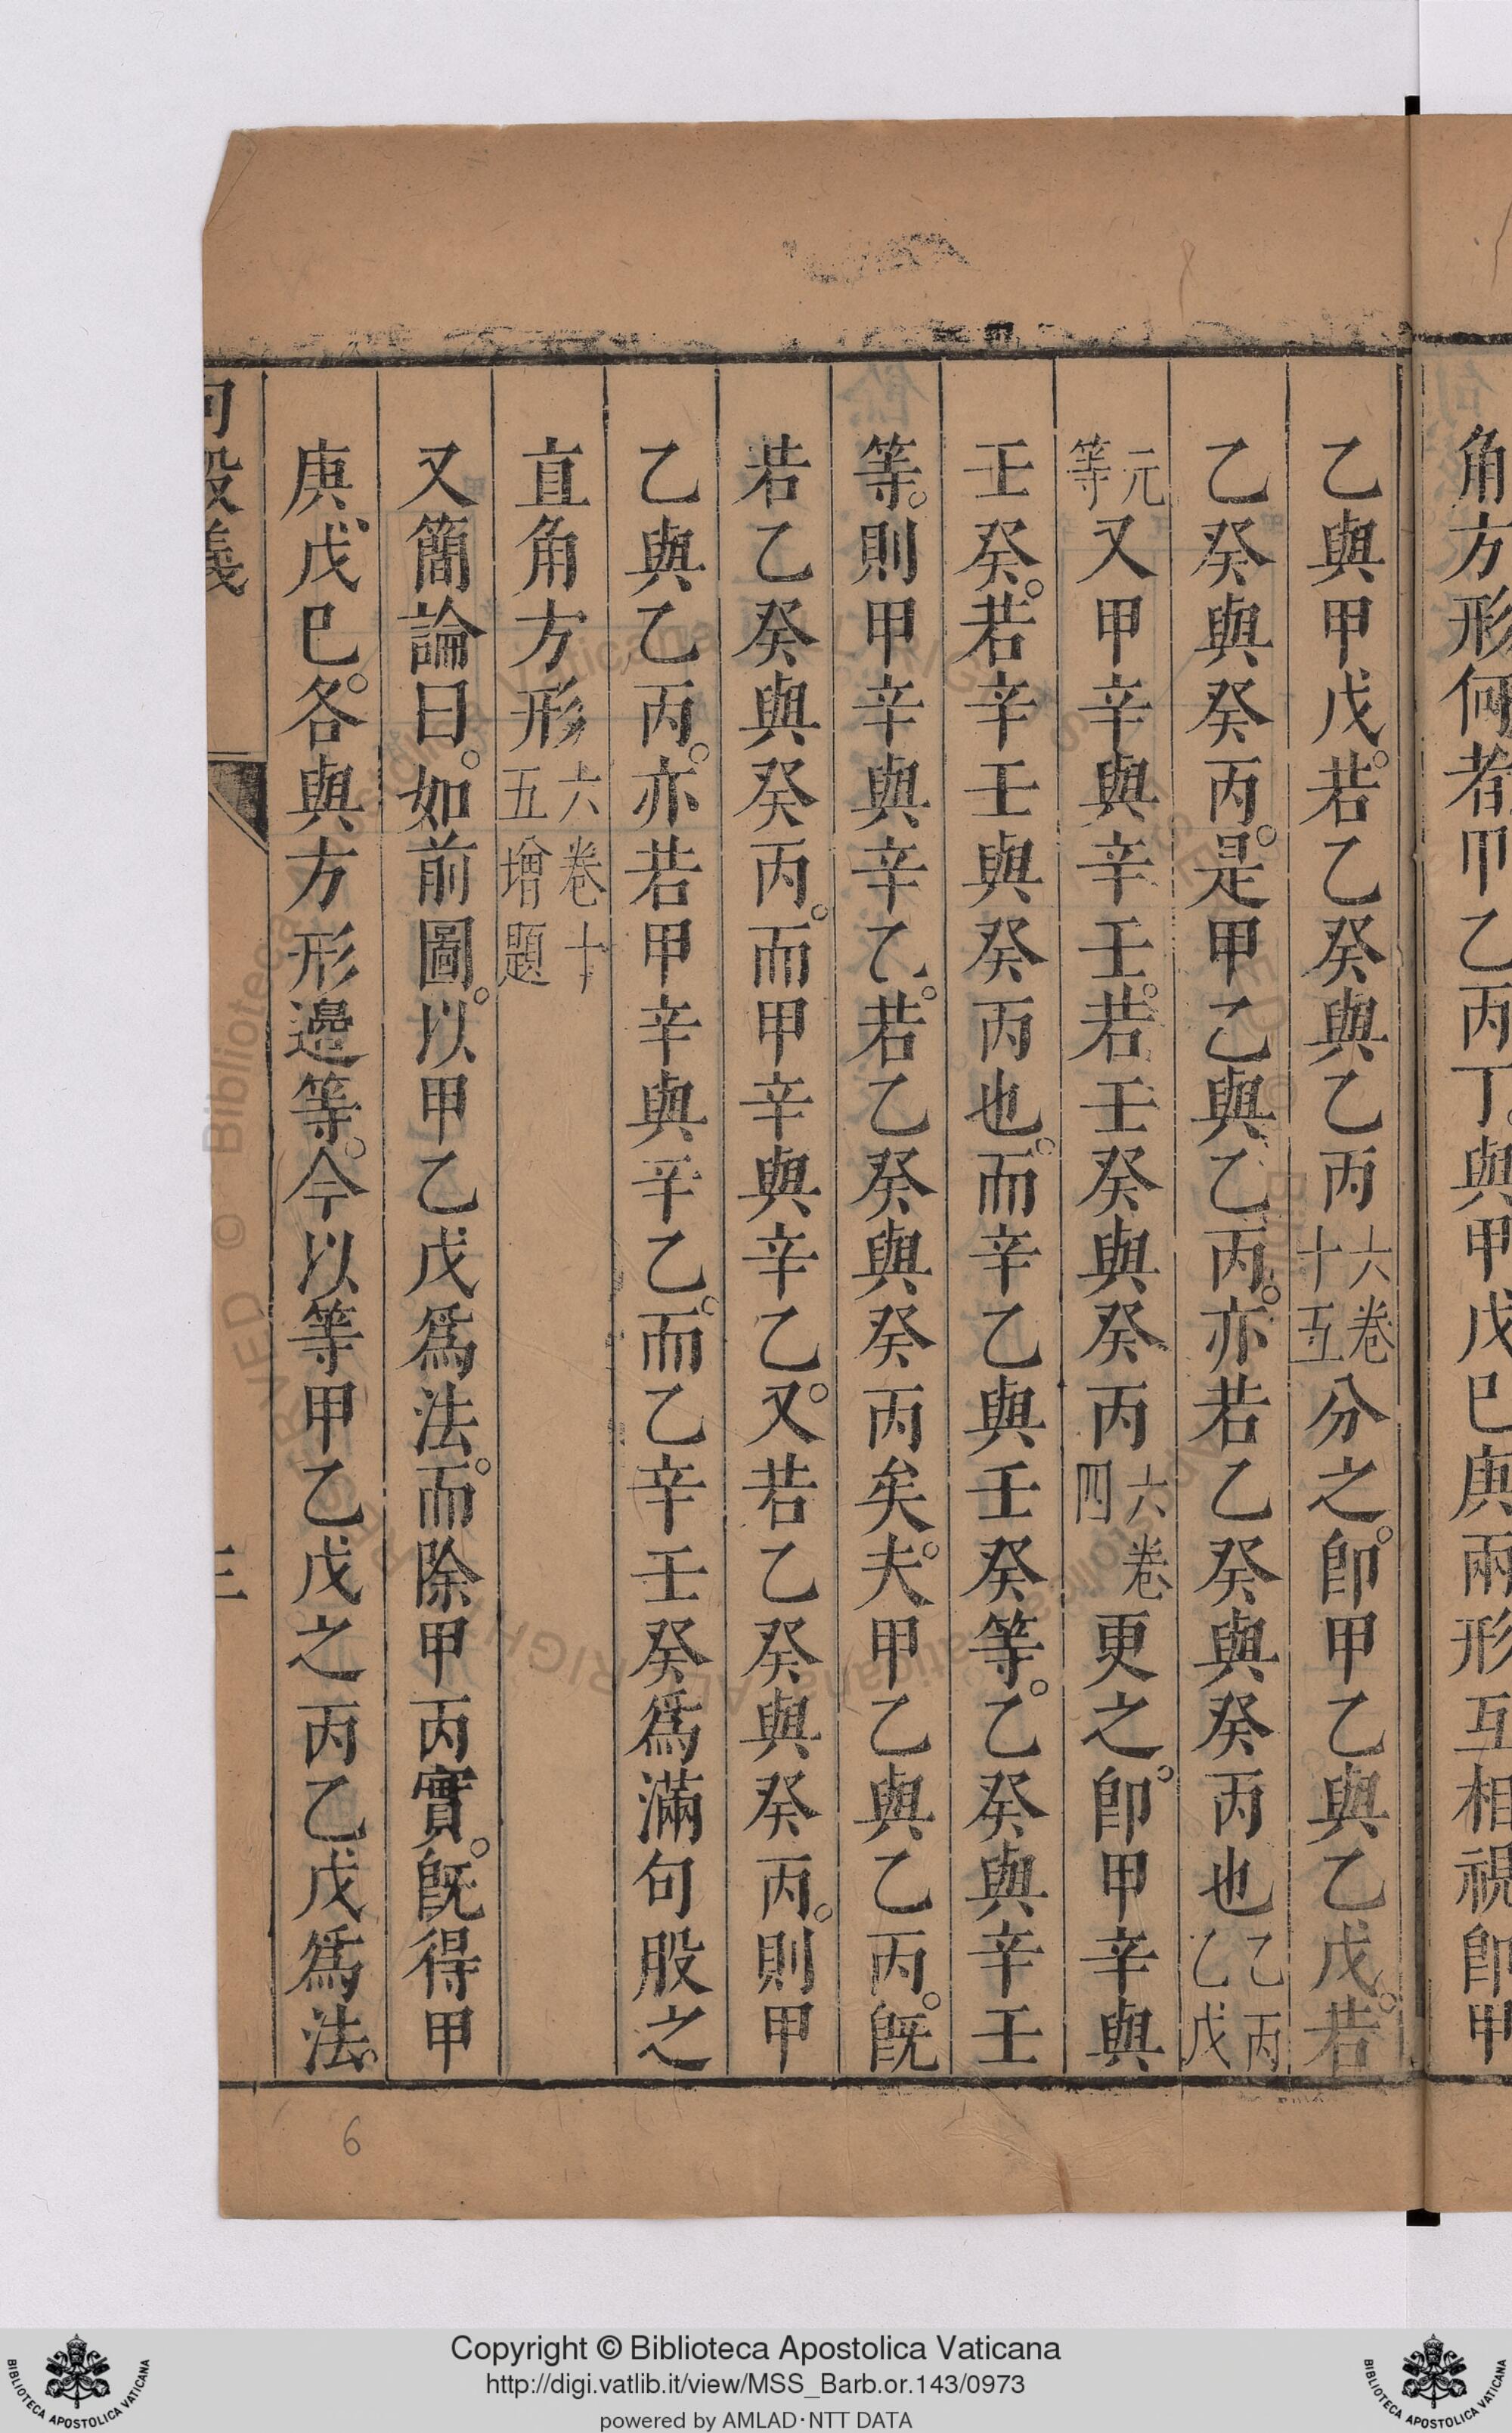 角方形何者卽乙丙丁。與甲戊巳庚兩形互相視卽甲
乙與甲戊。若乙癸與乙丙六卷十五分之。卽甲乙與乙戊。若
乙癸與癸丙。是甲乙與乙丙。亦若乙癸與癸丙也乙丙乙戊
元等又甲辛與辛壬。若壬癸與癸丙六卷四更之。卽甲辛與
壬癸。若辛壬與癸丙也。而辛乙與壬癸等。乙癸與辛壬
等。則甲辛與辛乙。若乙癸與癸丙矣。夫甲乙與乙丙。旣
若乙癸與癸丙。而甲辛與辛乙。又若乙癸與癸丙。則甲
乙與乙丙。亦若甲辛與辛乙。而乙辛壬癸爲滿句股之
直角方形六卷十五增題
又簡論曰。如前圖。以甲乙戊爲法。而除甲丙實。旣得甲
庚、戊巳。各與方形邊等。今以等甲乙戊之丙乙戊爲法、
句股義
三
6
Copyright © Biblioteca Apostolica Vaticana
http://digi.vatlib.it/view/MSS_Barb.or.143/0973
powered by AMLAD·NTT DATA
BIBLIOTECA APOSTOLICA VATICANA
BIBLIOTECA APOSTOLICA VATICANA